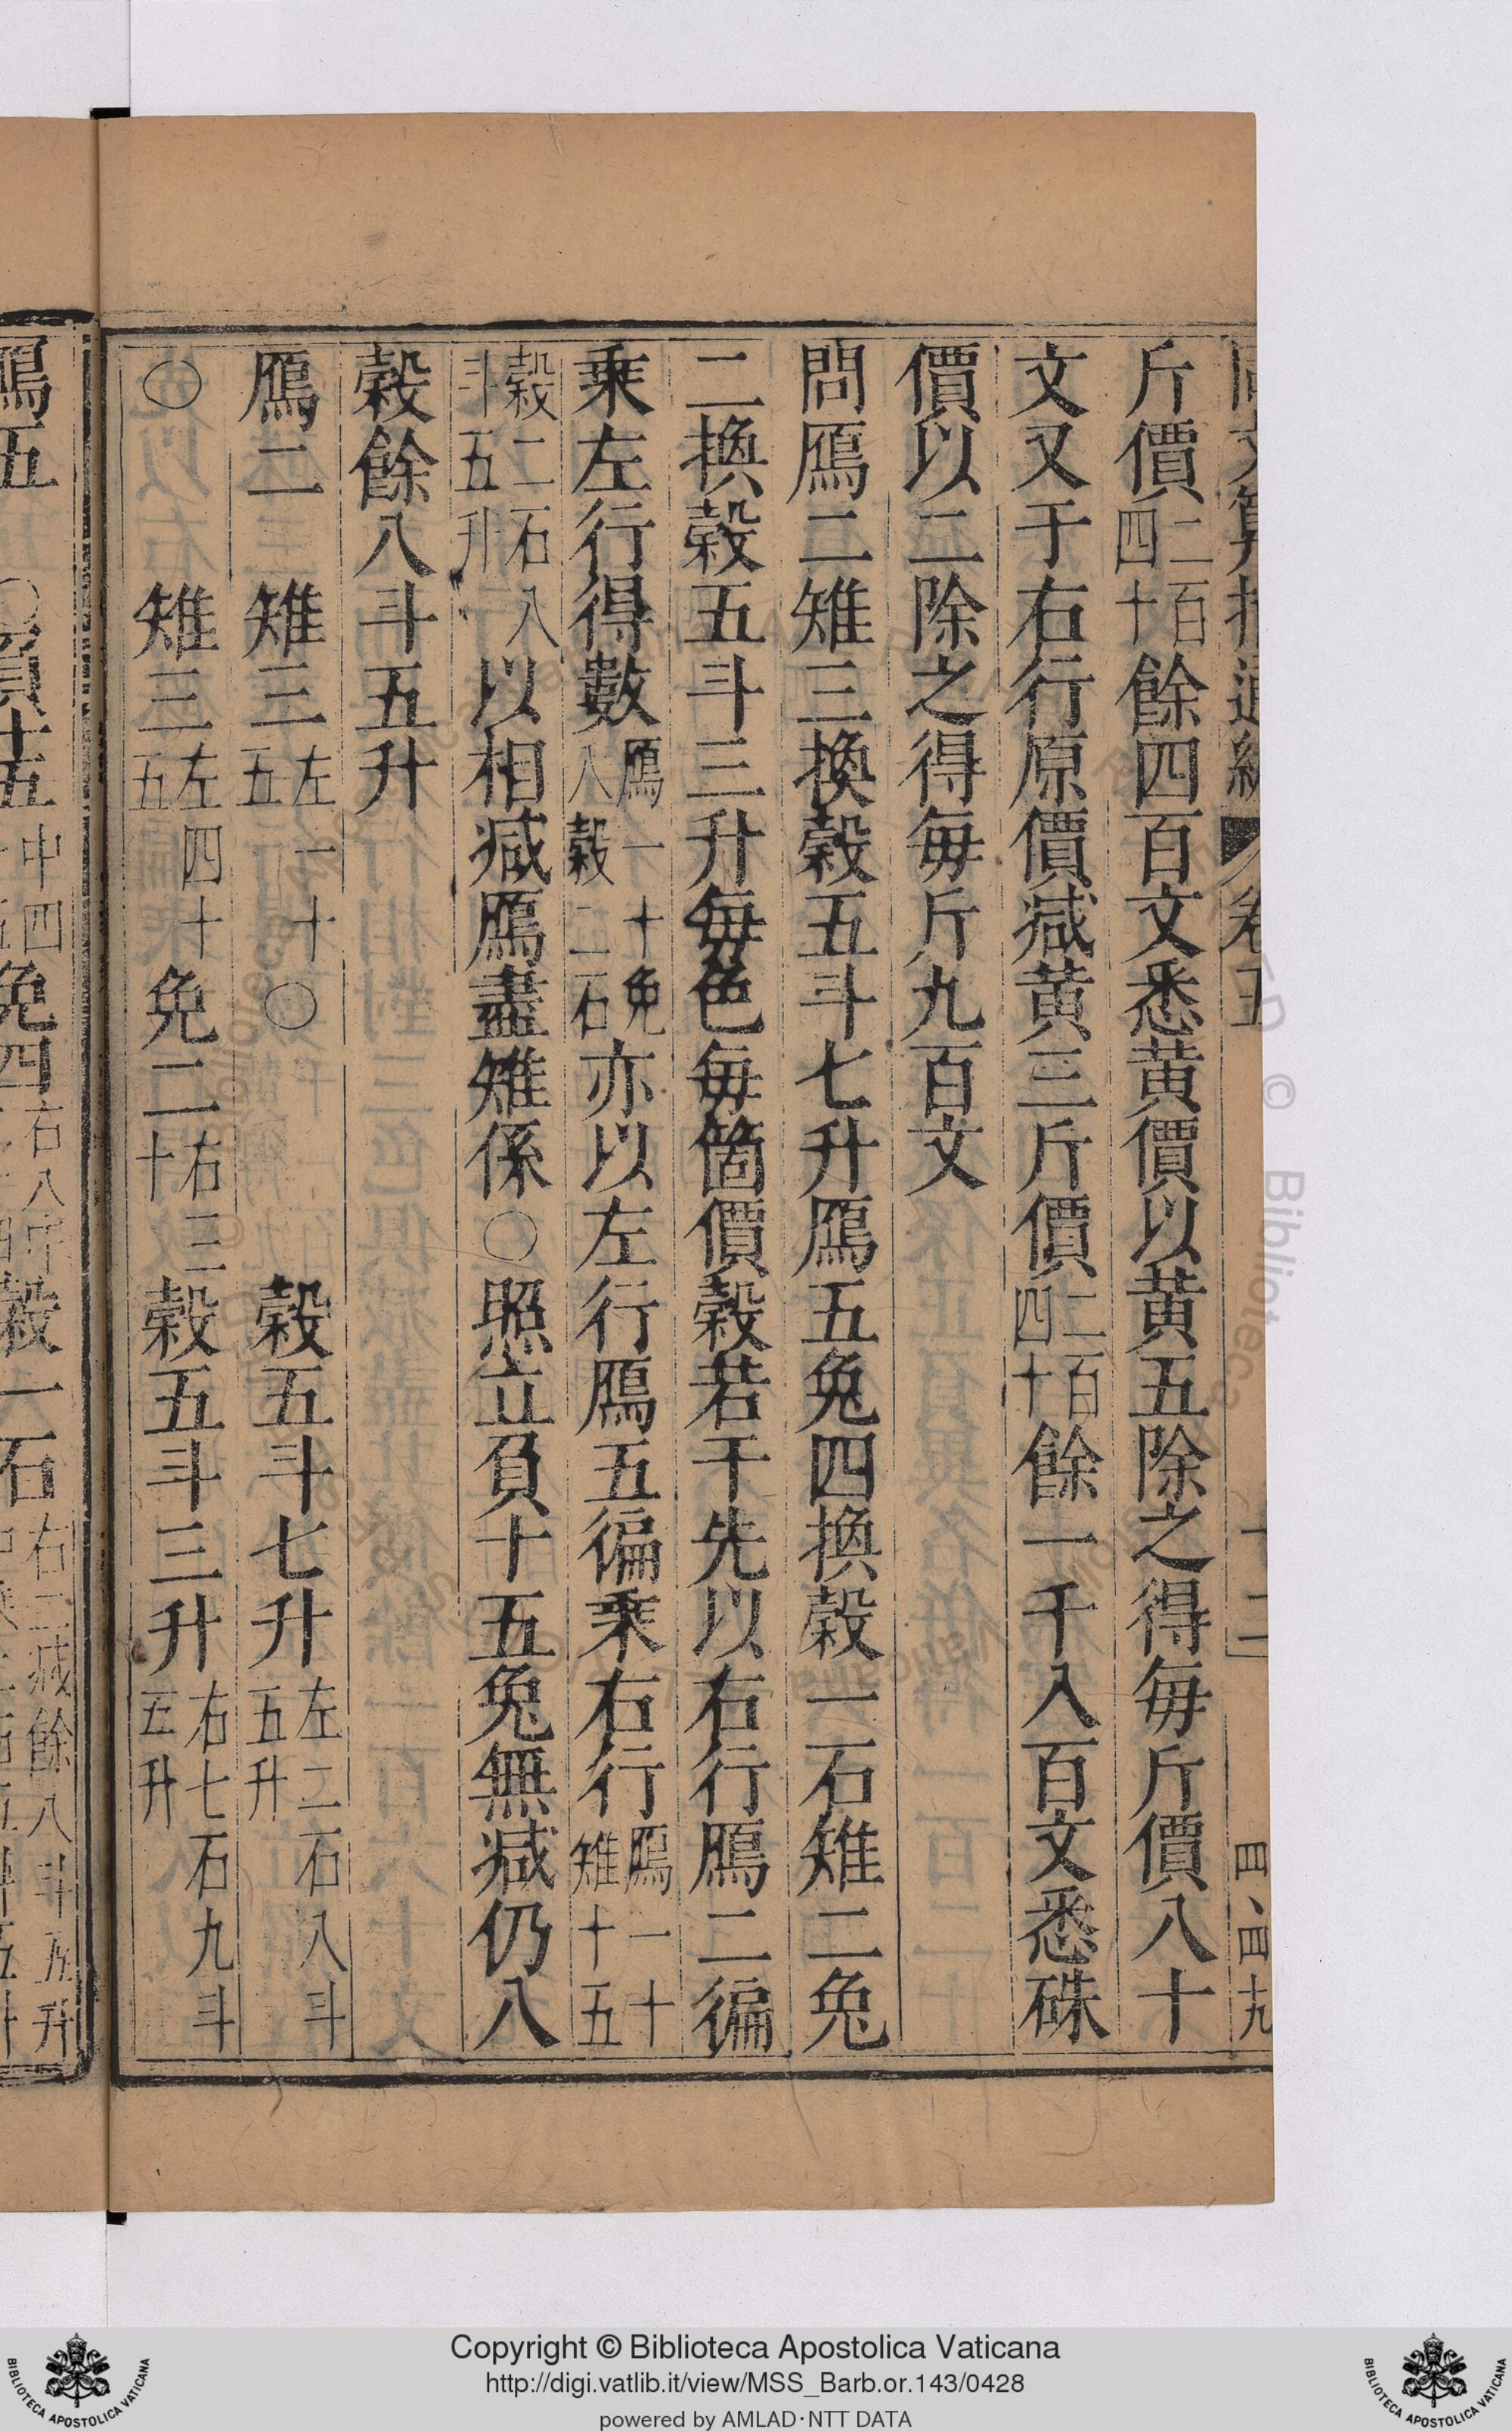 斤價二百四十餘四百文悉黄價以黄五除之得每斤價八十
文又于右行原價减黄三斤價二百四十餘一千入百文悉硃
價以二除之得每斤九百文
問鴈二雉三換穀五斗七升鴈五兔四換穀一石雉二兔
二換穀五斗三升每色每箇價穀若干先以右行鴈二徧
乘左行得數鴈一十兔八穀二石亦以左行鴈五徧乘右行鴈一十雉十五
穀二石八斗五升以相减鴈盡雉係〇照立負十五兔無减仍八
穀餘八斗五升
鴈二 雉三左一十五 〇 穀五斗七升左二石八斗五升
〇 雉三左四十五 兔二右三十 穀五斗三升右七石九斗五升
卷五
Copyright © Biblioteca Apostolica Vaticana
http://digi.vatlib.it/view/MSS_Barb.or.143/0428
powered by AMLAD·NTT DATA
BIBLIOTECA APOSTOLICA VATICANA
BIBLIOTECA APOSTOLICA VATICANA